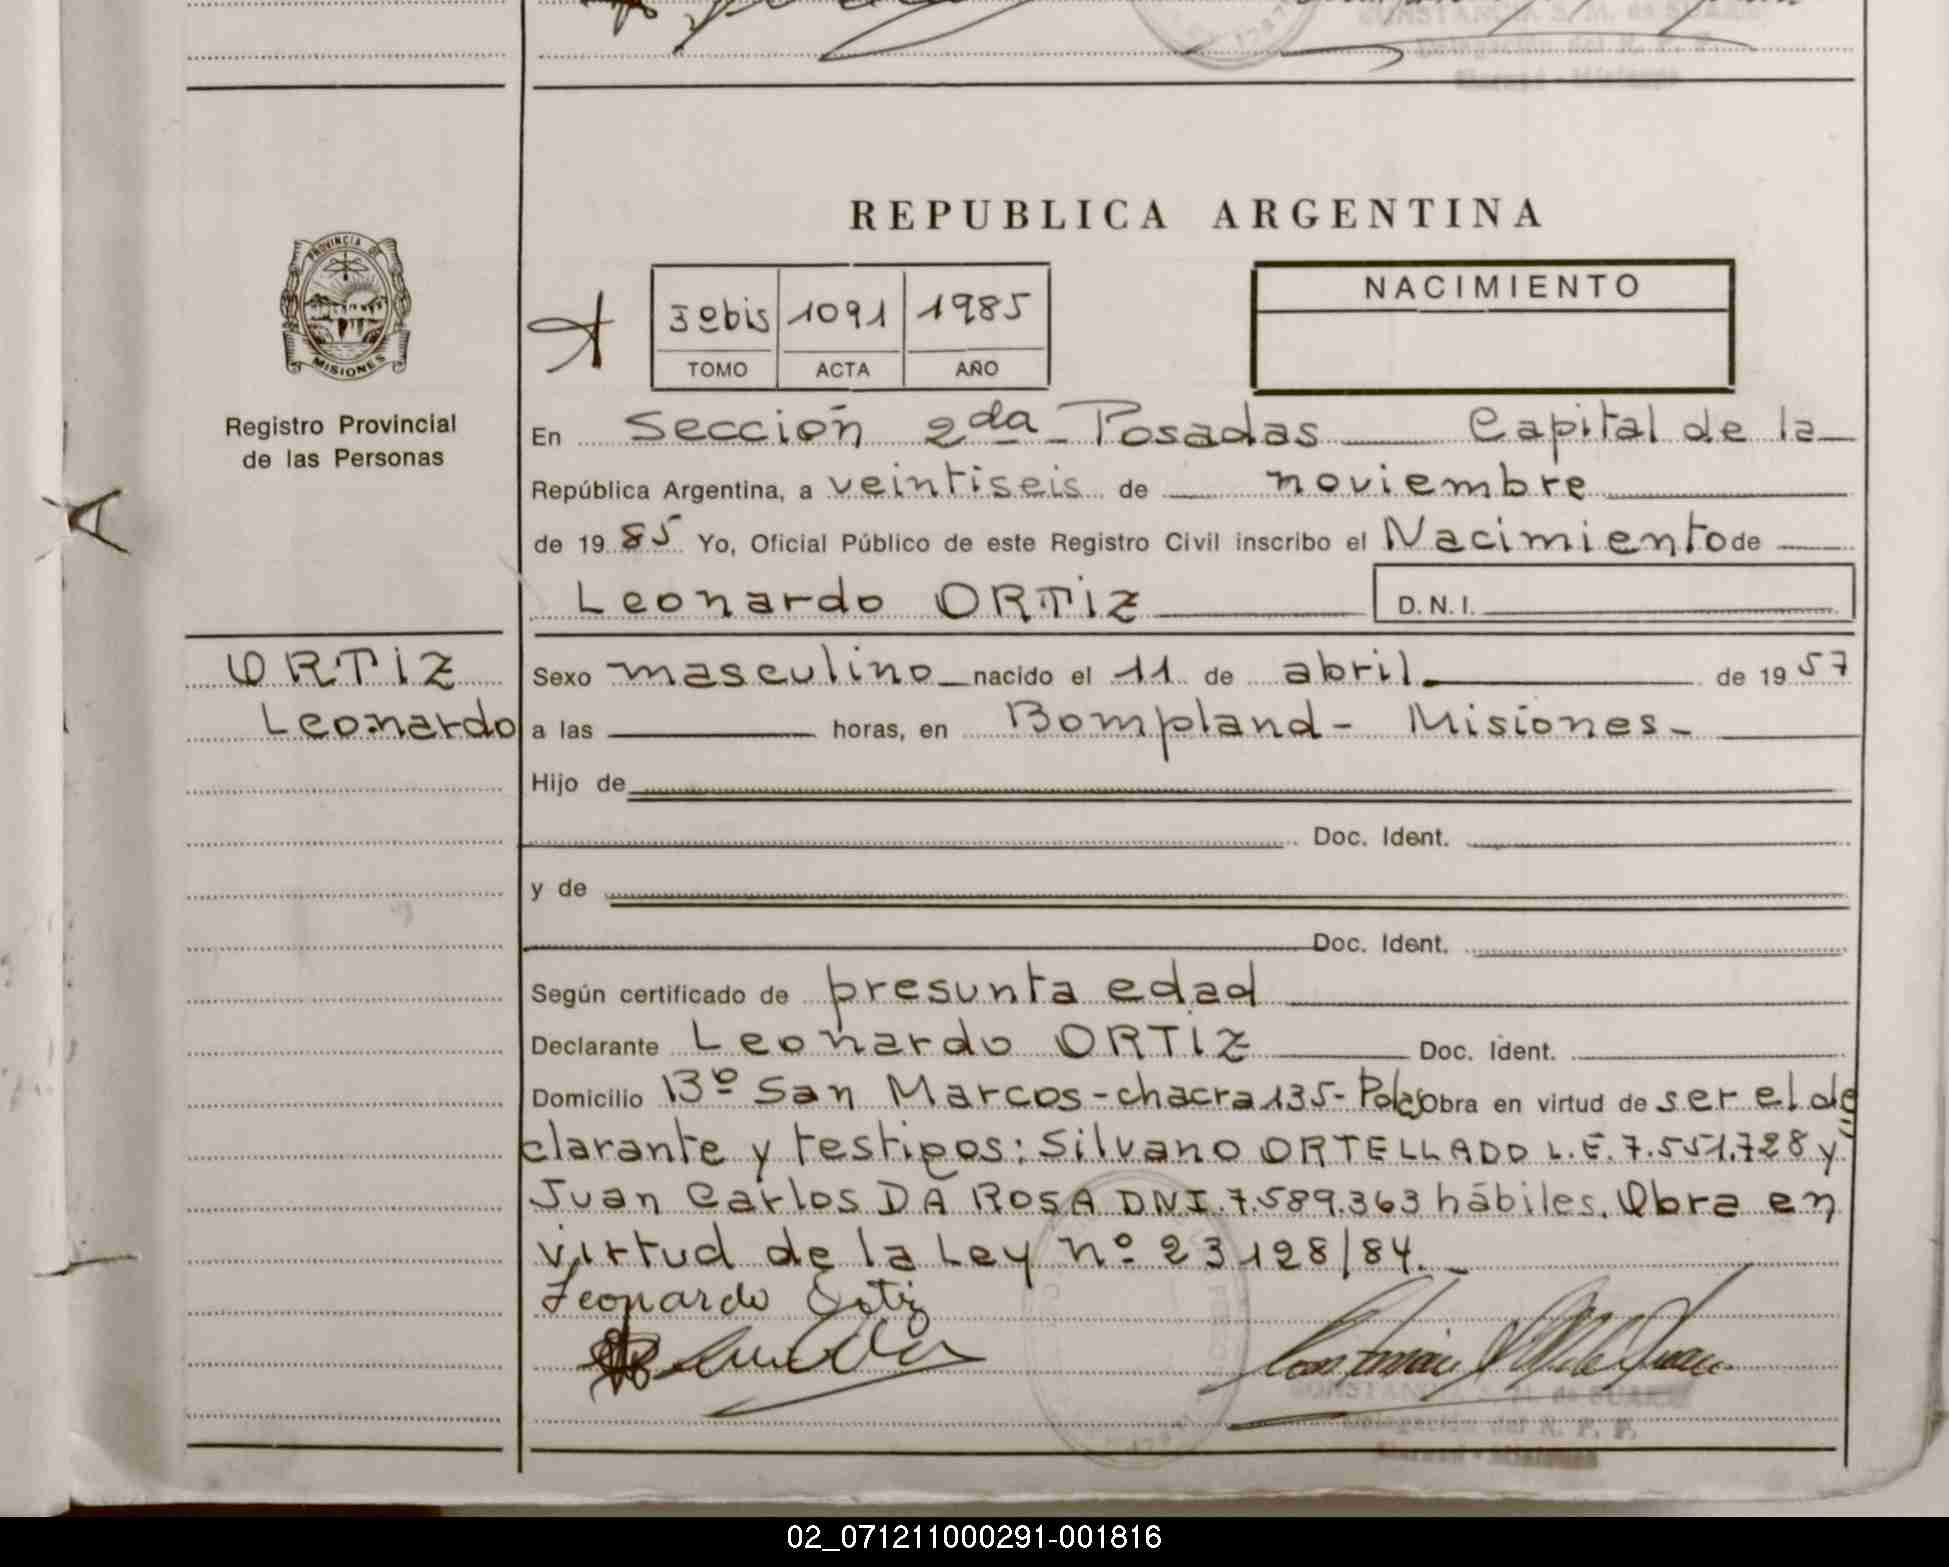 REPUBLICA ARGENTINA
PROVINCIA DE
MISIONES
Registro Provincial
de las Personas
3º bis 1091 1985
TOMO ACTA AÑO
NACIMIENTO
En Sección 2da - Posadas Capital de la
República Argentina, a veintiseis de noviembre
de 1985 Yo, Oficial Público de este Registro Civil inscribo el Nacimiento de
Leonardo ORTIZ D.N.I.
ORTIZ
Leonardo
Sexo masculino nacido el 11 de abril de 1957
a las horas, en Bompland - Misiones -
Hijo de
Doc. Ident.
y de
Doc. Ident.
Según certificado de presunta edad
Declarante Leonardo ORTIZ Doc. Ident.
Domicilio Bº San Marcos - chacra 135 - Pdas Obra en virtud de ser el de
clarante y testigos: Silvano ORTELLADO L.E. 7.551.728 y
Juan Carlos DA ROSA DNI. 7.589.363 hábiles. Obra en
virtud de la Ley nº 23128/84. -
Leonardo Ortiz
CONSTANCIA S. M. de SUAREZ
Delegación del R. P. P.
02_071211000291-001816